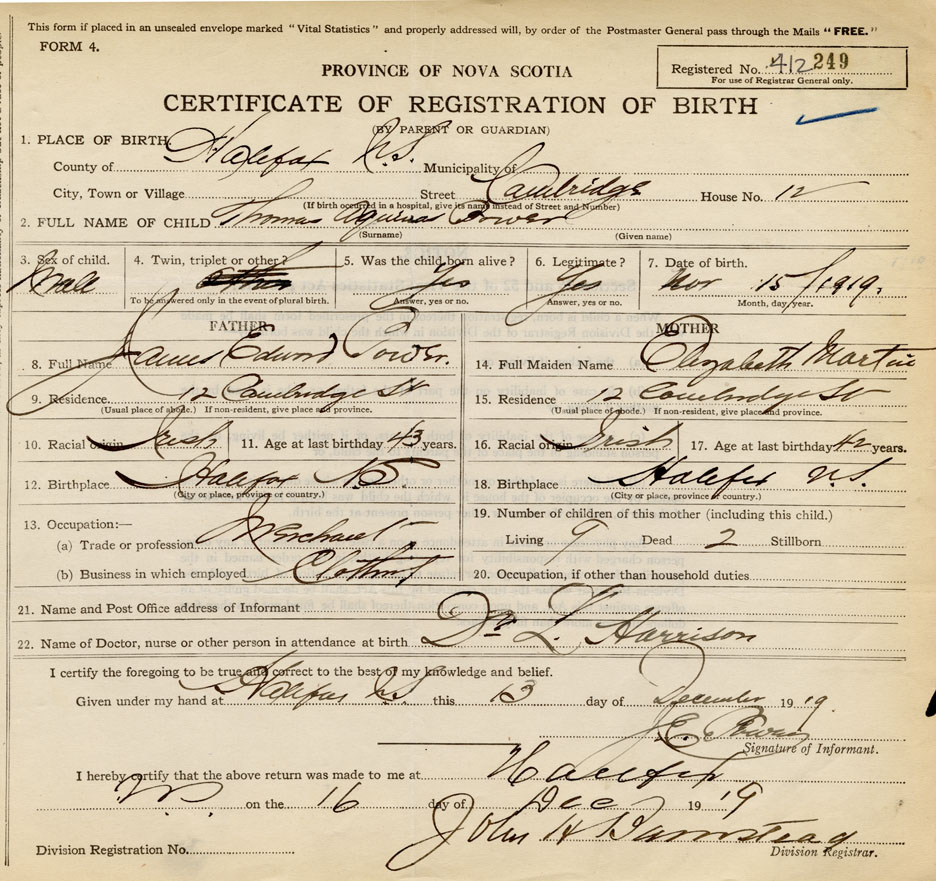 This form if placed in an unsealed envelope marked "Vital Statistics" and properly addressed will, by order of the Postmaster General pass through the Mails "FREE."
FORM 4.
Registered No. 412 249
For use of Registrar General only.
PROVINCE OF NOVA SCOTIA
CERTIFICATE OF REGISTRATION OF BIRTH
(BY PARENT OR GUARDIAN)
1. PLACE OF BIRTH
County of Halifax N.S. Municipality of
City, Town or Village Street Cambridge House No. 12
(If birth occured in a hospital, give its name instead of Street and Number)
2. FULL NAME OF CHILD Thomas Aquinas Power
(Surname) (Given name)
3. Sex of child. Male
4. Twin, triplet or other?
To be answered only in the event of plural birth.
5. Was the child born alive? Yes
Answer, yes or no.
6. Legitimate? Yes
Answer, yes or no.
7. Date of birth. Nov 15/1919.
Month, day, year.
FATHER
8. Full Name James Edward Power.
9. Residence 12 Cambridge St
(Usual place of abode.) If non-resident, give place and province.
10. Racial origin Irish 11. Age at last birthday 43 years.
12. Birthplace Halifax N.S.
(City or place, province or country.)
13. Occupation:—
(a) Trade or profession Merchant
(b) Business in which employed Clothing
MOTHER
14. Full Maiden Name Elizabeth Martin
15. Residence 12 Cambridge St
(Usual place of abode.) If non-resident, give place and province.
16. Racial origin Irish 17. Age at last birthday 42 years.
18. Birthplace Halifax N.S.
(City or place, province or country.)
19. Number of children of this mother (including this child.)
Living 9 Dead 2 Stillborn
20. Occupation, if other than household duties
21. Name and Post Office address of Informant
22. Name of Doctor, nurse or other person in attendance at birth Dr L. Harrison
I certify the foregoing to be true and correct to the best of my knowledge and belief.
Given under my hand at Halifax N.S. this 13 day of December 1919.
J. E. Power
Signature of Informant.
I hereby certify that the above return was made to me at Halifax
N.S. on the 16 day of Dec 1919
John H Barnstead
Division Registration No. Division Registrar.